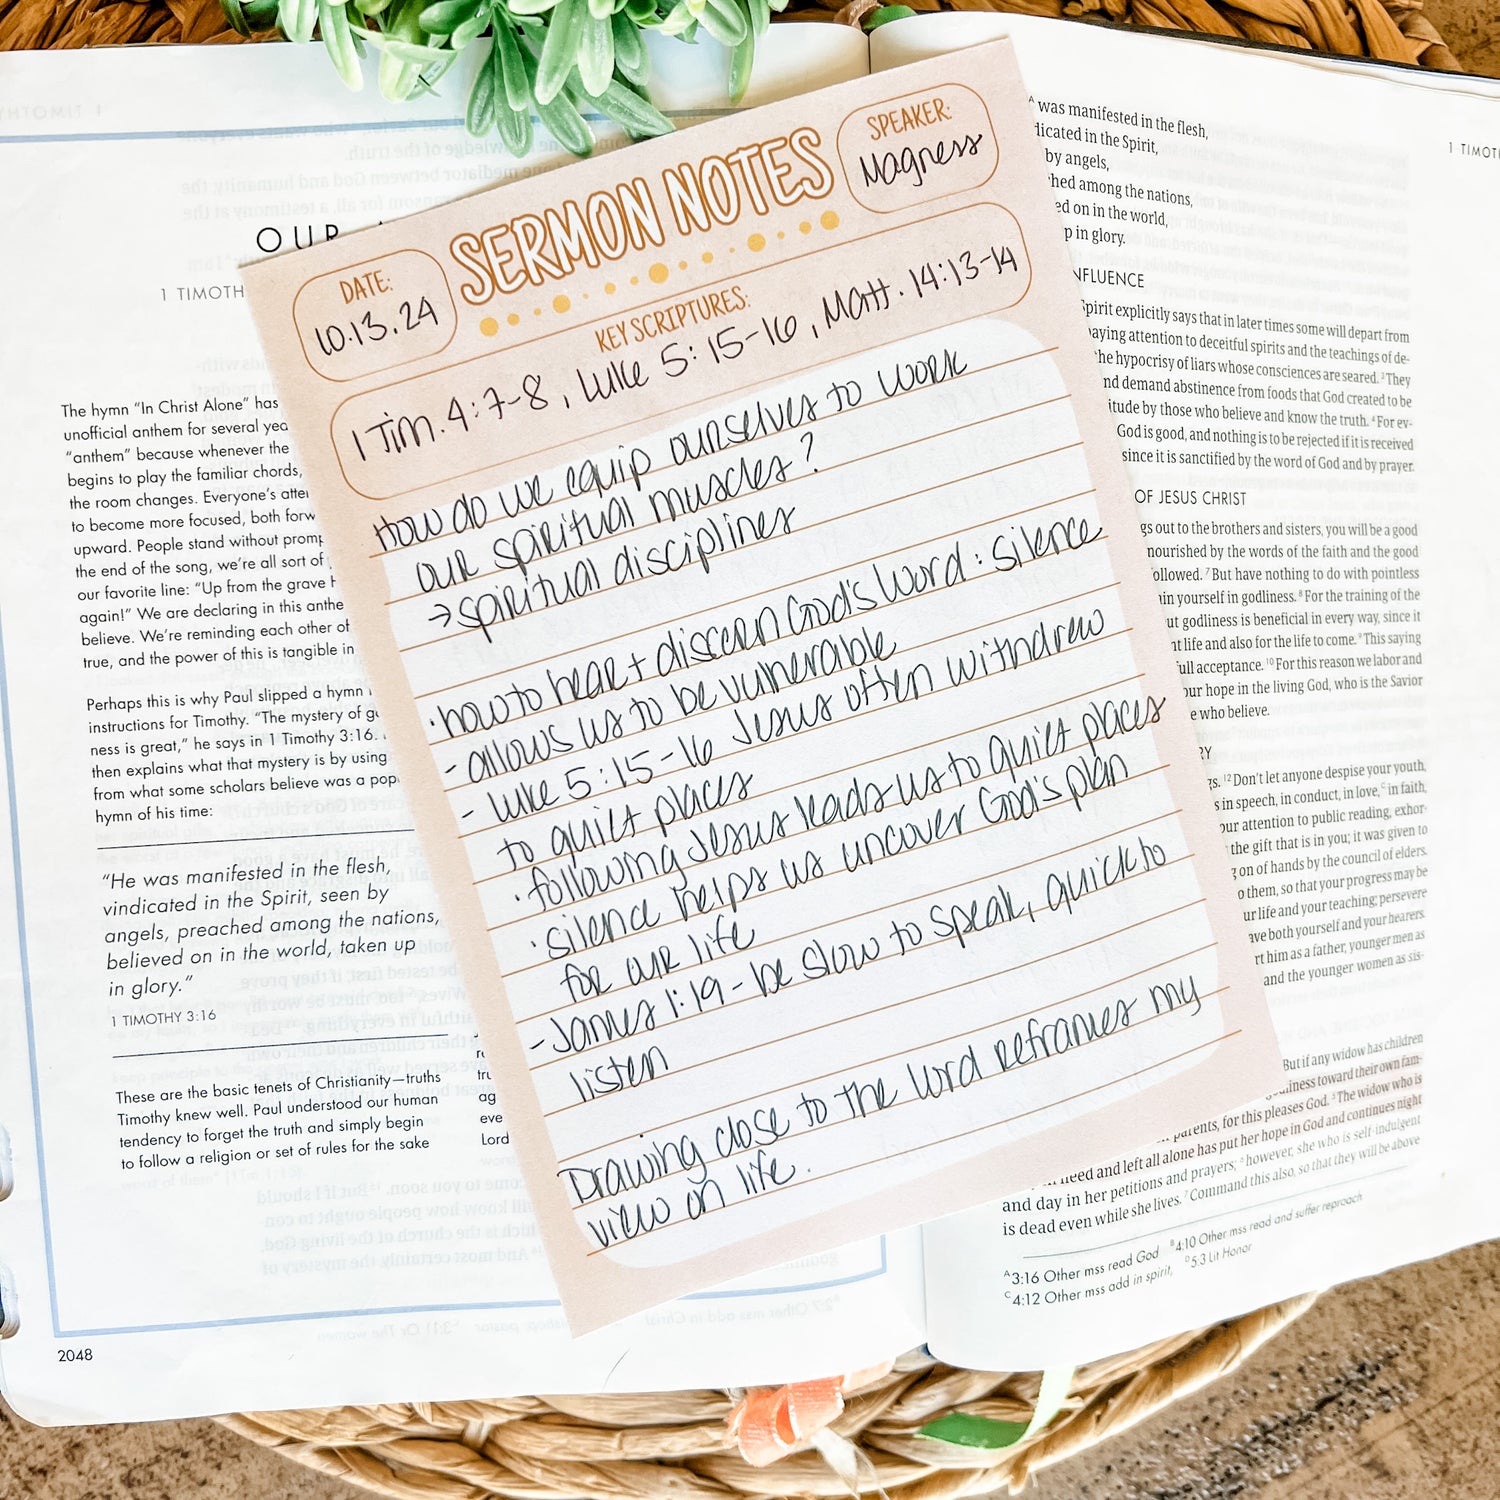 OUR
1 TIMOTH
The hymn “In Christ Alone” has
unofficial anthem for several yea
“anthem” because whenever the
begins to play the familiar chords,
the room changes. Everyone’s atte
to become more focused, both forw
upward. People stand without promp
the end of the song, we’re all sort of
our favorite line: “Up from the grave H
again!” We are declaring in this anthe
believe. We’re reminding each other of
true, and the power of this is tangible in
Perhaps this is why Paul slipped a hymn
instructions for Timothy. “The mystery of go
ness is great,” he says in 1 Timothy 3:16.
then explains what that mystery is by using
from what some scholars believe was a pop
hymn of his time:
“He was manifested in the flesh,
vindicated in the Spirit, seen by
angels, preached among the nations,
believed on in the world, taken up
in glory.”
1 TIMOTHY 3:16
These are the basic tenets of Christianity—truths
Timothy knew well. Paul understood our human
tendency to forget the truth and simply begin
to follow a religion or set of rules for the sake
tru
ag
eve
Lord
2048
SERMON NOTES
DATE:
10.13.24
SPEAKER:
Magness
KEY SCRIPTURES:
1 Tim. 4:7-8, Luke 5:15-16, Matt. 14:13-14
How do we equip ourselves to work
our spiritual muscles?
→ spiritual disciplines
· how to hear + discern God's Word: silence
- allows us to be vulnerable
- Luke 5:15-16 Jesus often withdrew
to quiet places
· following Jesus leads us to quiet places
· silence helps us uncover God's plan
for our life
- James 1:19 - be slow to speak, quick to
listen
Drawing close to the Word reframes my
view on life.
1 TIMOT
A was manifested in the flesh,
dicated in the Spirit,
by angels,
hed among the nations,
ed on in the world,
p in glory.
NFLUENCE
Spirit explicitly says that in later times some will depart from
aying attention to deceitful spirits and the teachings of de-
he hypocrisy of liars whose consciences are seared. 3 They
nd demand abstinence from foods that God created to be
itude by those who believe and know the truth. 4 For ev-
God is good, and nothing is to be rejected if it is received
since it is sanctified by the word of God and by prayer.
OF JESUS CHRIST
gs out to the brothers and sisters, you will be a good
nourished by the words of the faith and the good
ollowed. 7 But have nothing to do with pointless
in yourself in godliness. 8 For the training of the
ut godliness is beneficial in every way, since it
nt life and also for the life to come. 9 This saying
full acceptance. 10 For this reason we labor and
our hope in the living God, who is the Savior
e who believe.
RY
gs. 12 Don’t let anyone despise your youth,
s in speech, in conduct, in love, C in faith,
our attention to public reading, exhor-
the gift that is in you; it was given to
g on of hands by the council of elders.
o them, so that your progress may be
ur life and your teaching; persevere
ave both yourself and your hearers.
rt him as a father, younger men as
and the younger women as sis-
But if any widow has children
liness toward their own fam-
parents, for this pleases God. 5 The widow who is
need and left all alone has put her hope in God and continues night
and day in her petitions and prayers; 6 however, she who is self-indulgent
is dead even while she lives. 7 Command this also, so that they will be above
A 3:16 Other mss read God B 4:10 Other mss read and suffer reproach
C 4:12 Other mss add in spirit, D 5:3 Lit Honor